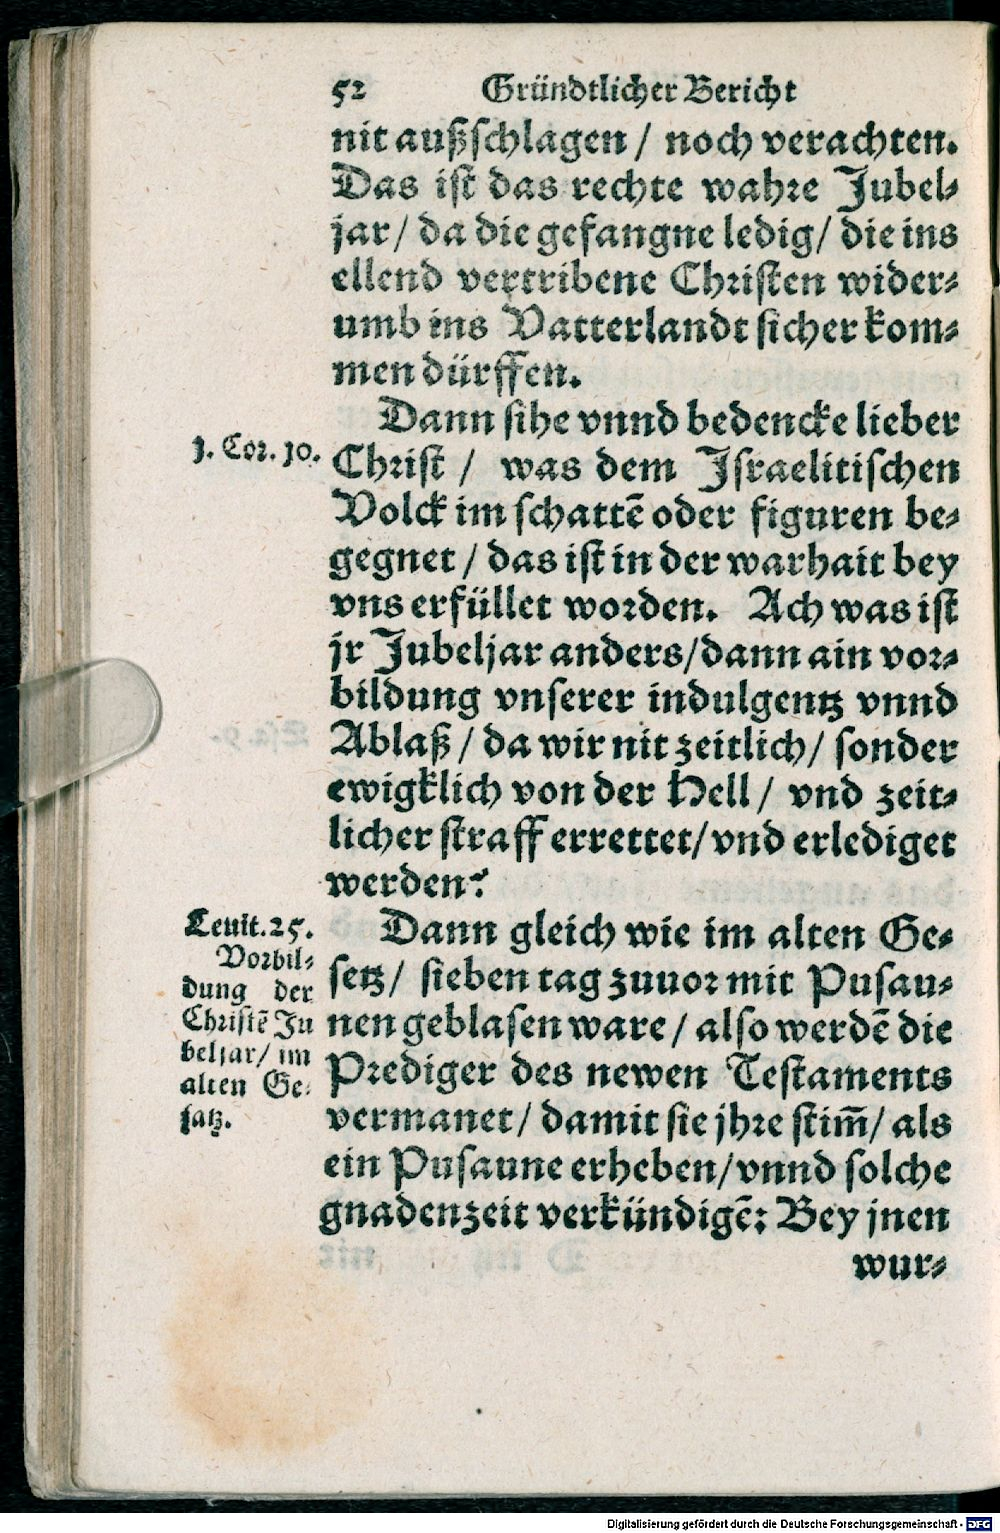 52 Gründtlicher Bericht
nit außschlagen / noch verachten.
Das ist das rechte wahre Jubel⸗
jar / da die gefangne ledig / die ins
ellend vertribene Christen wider⸗
umb ins Vatterlandt sicher kom⸗
men dürffen.
Dann sihe vnnd bedencke lieber
1. Cor. 10.
Christ / was dem Israelitischen
Volck im schattē oder figuren be⸗
gegnet / das ist in der warhait bey
vns erfüllet worden. Ach was ist
jr Jubeljar anders / dann ain vor⸗
bildung vnserer indulgentz vnnd
Ablaß / da wir nit zeitlich / sonder
ewigklich von der Hell / vnd zeit⸗
licher straff errettet / vnd erlediget
werden?
Leuit. 25.
Vorbil⸗
dung der
Christē Ju
beljar / im
alten Ge⸗
satz.
Dann gleich wie im alten Ge⸗
setz / sieben tag zuuor mit Pusau⸗
nen geblasen ware / also werdē die
Prediger des newen Testaments
vermanet / damit sie jhre stim̄ / als
ein Pusaune erheben / vnnd solche
gnadenzeit verkündigē: Bey jnen
wur⸗
Digitalisierung gefördert durch die Deutsche Forschungsgemeinschaft - DFG